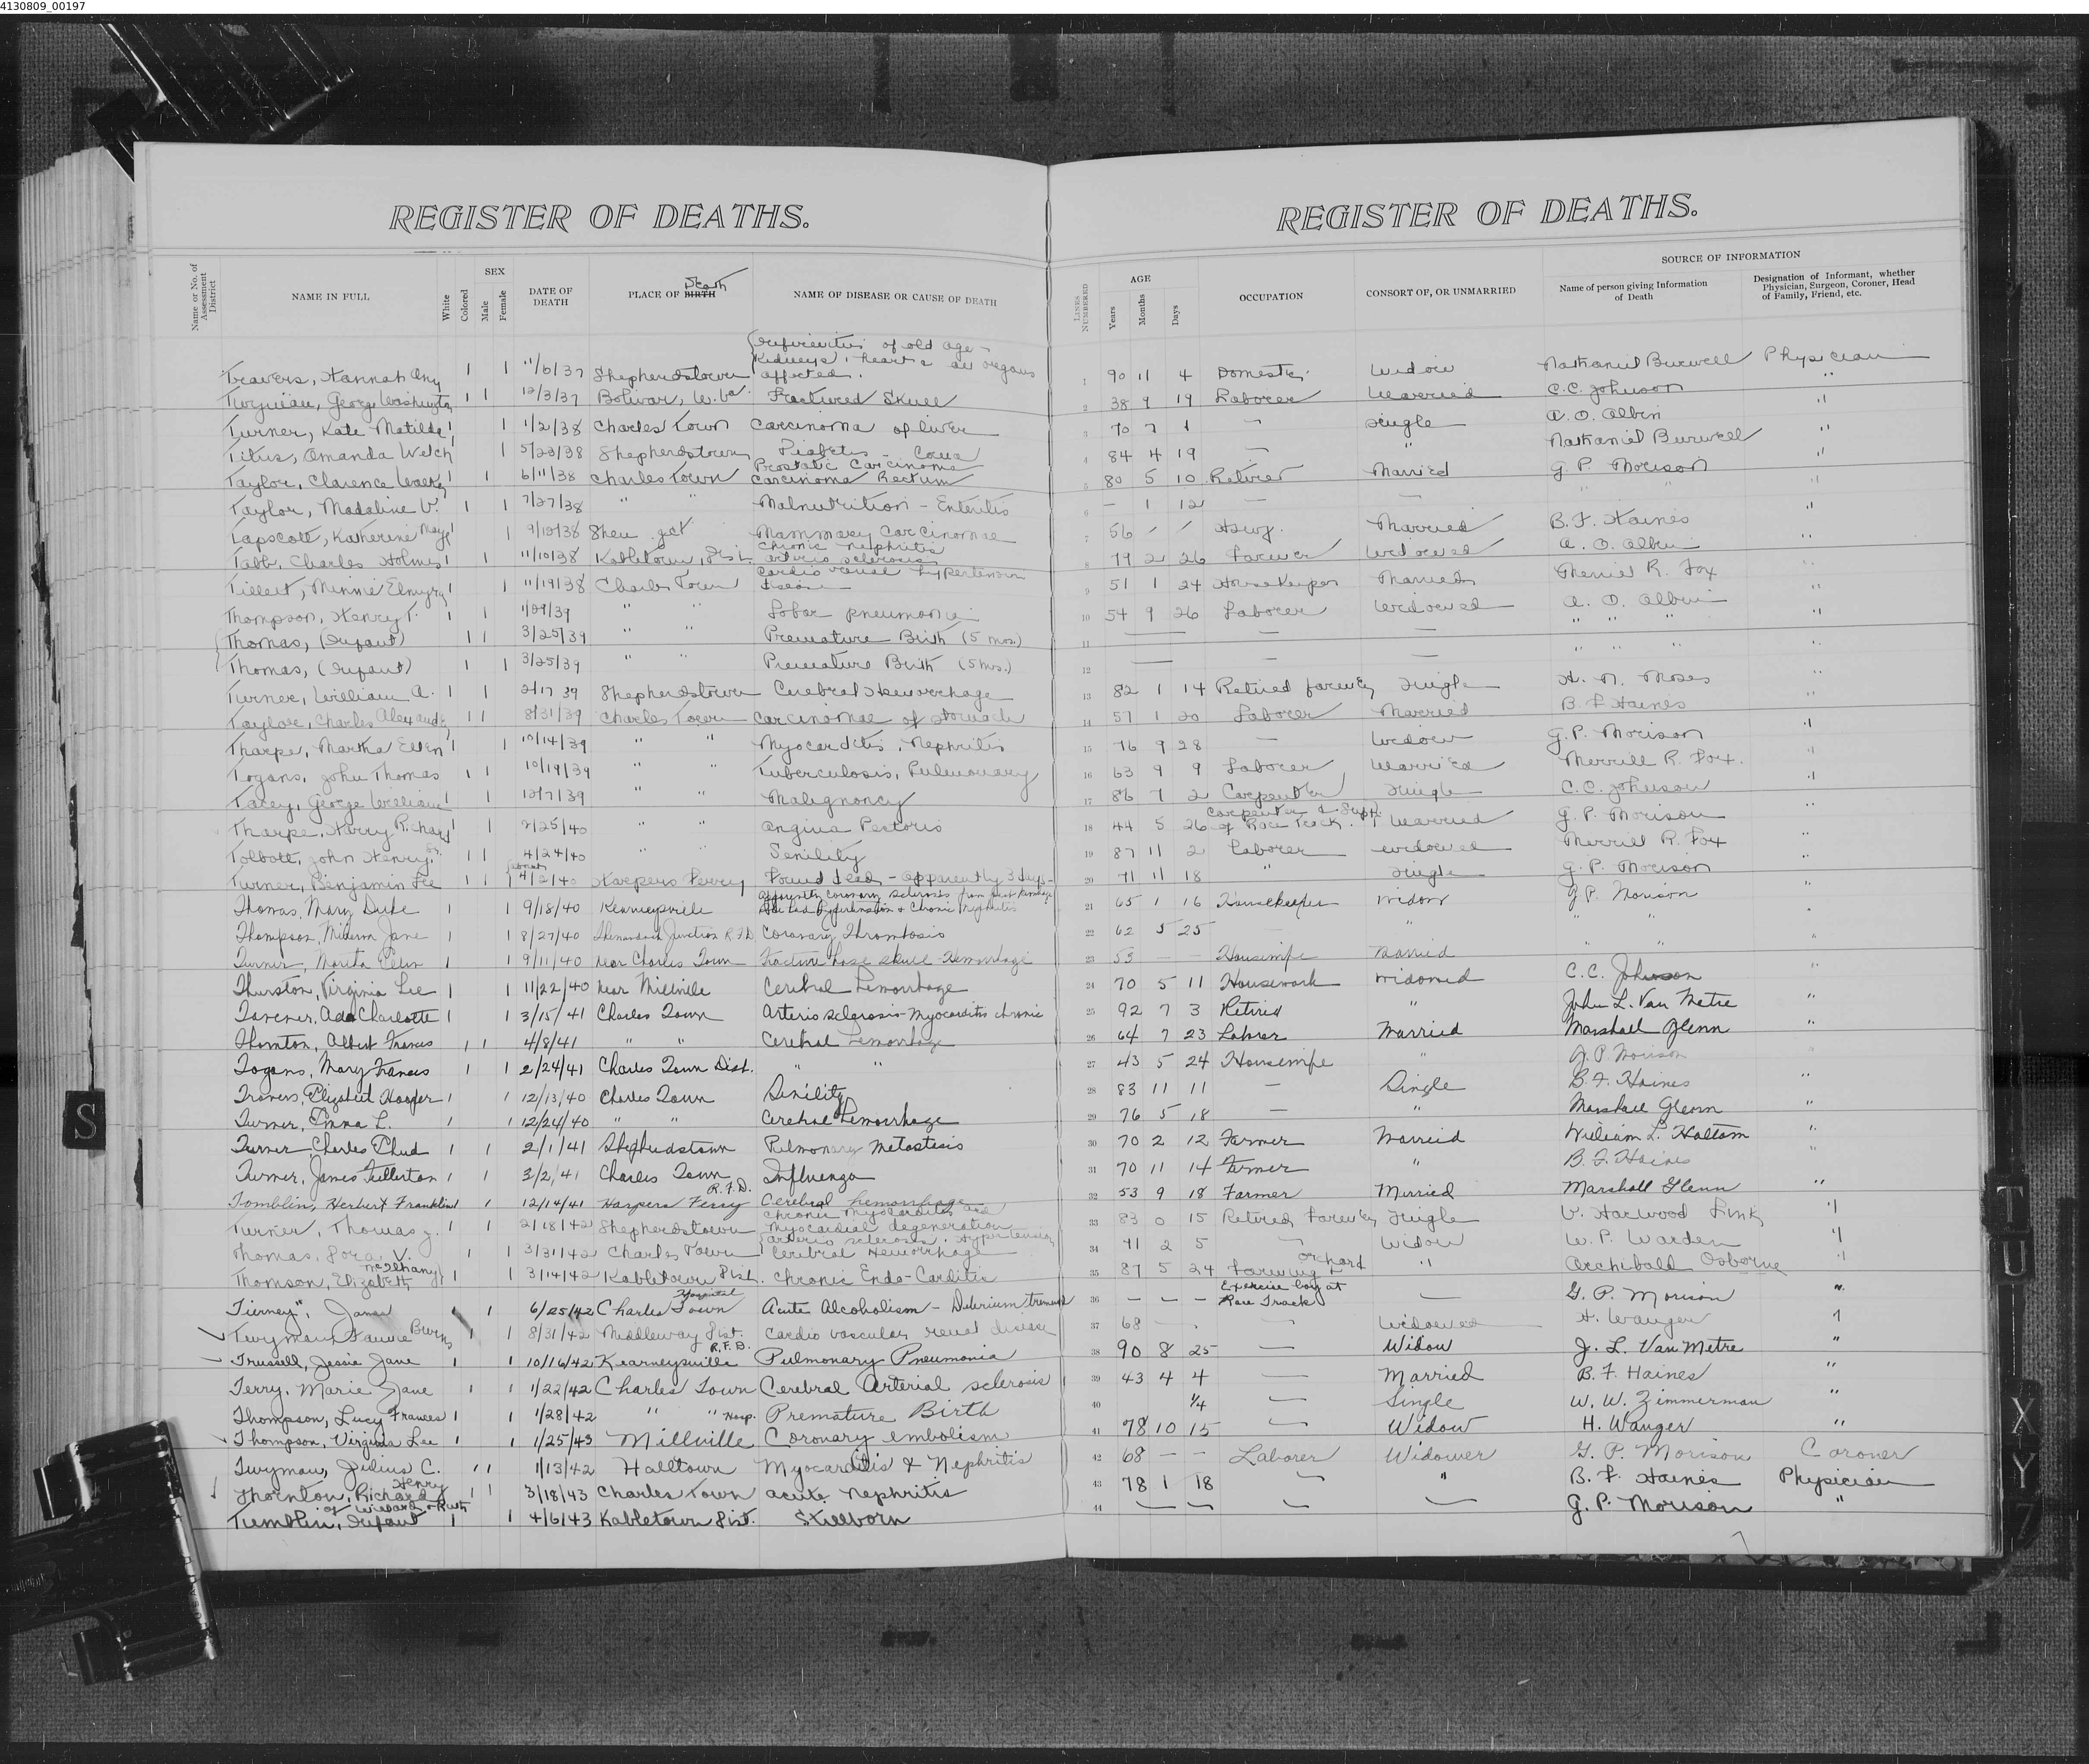 4130809_00197
REGISTER OF DEATHS.
REGISTER OF DEATHS.
Name or No. of Assessment District
NAME IN FULL
White
Colored
SEX
Male
Female
DATE OF DEATH
PLACE OF BIRTH Death
NAME OF DISEASE OR CAUSE OF DEATH
LINES NUMBERED
AGE
Years
Months
Days
OCCUPATION
CONSORT OF, OR UNMARRIED
SOURCE OF INFORMATION
Name of person giving Information of Death
Designation of Informant, whether Physician, Surgeon, Coroner, Head of Family, Friend, etc.
Travers, Hannah Any 1 1 11/6/37 Shepherdstown Infirmities of old age - Kidneys, heart & all organs affected. 1 90 11 4 Domestic Widow Nathaniel Burwell Physician
Twyman, George Washington 1 1 12/3/37 Bolivar, W. Va. Fractured Skull 2 38 9 19 Laborer Married C.C. Johnson "
Turner, Kate Matilda 1 1 1/2/38 Charles Town Carcinoma of liver 3 70 7 1 — Single A. O. Albin "
Titus, Amanda Welch 1 1 5/23/38 Shepherdstown Diabetes - Coma 4 84 4 19 — " Nathaniel Burwell "
Taylor, Clarence 1 1 6/11/38 Charles Town Prostatic Carcinoma Carcinoma Rectum 5 80 5 10 Retired Married G. P. Morison "
Taylor, Madaline V. 1 1 7/27/38 " " Malnutrition - Enteritis 6 — 1 12 — — " " "
Tapscott, Katherine May 1 1 9/10/38 Shen. Jct Mammary Carcinomae 7 56 / / Hswf. Married B. F. Haines "
Tabb, Charles Holmes 1 1 11/10/38 Kabletown Dist. Chronic nephritis arterio sclerosis 8 79 2 26 Farmer Widowed A. O. Albin "
Tillett, Minnie Elmyra 1 1 11/19/38 Charles Town Cardio renal hypertension disease 9 51 1 24 Housekeeper Married R. Fox "
Thompson, Henry T. 1 1 1/29/39 " " Lobar pneumonia 10 54 9 26 Laborer Widowed A. O. Albin "
Thomas, (Infant) 1 1 3/25/39 " " Premature Birth (5 mos.) 11 — — — " " " "
Thomas, (Infant) 1 1 3/25/39 " " Premature Birth (5 mos.) 12 — — — " " " "
Turner, William A. 1 1 2/17 39 Shepherdstown Cerebral Hemorrhage 13 82 1 14 Retired farmer Single H. N. Moses "
Taylor, Charles Alexander 1 1 8/31/39 Charles Town Carcinomae of stomach 14 57 1 20 Laborer Married B F Haines
Tharpe, Martha Ellen 1 1 10/14/39 " " Myocarditis, Nephritis 15 76 9 28 — Widow G. P. Morison "
Togans, John Thomas 1 1 10/19/39 " " Tuberculosis, Pulmonary 16 63 9 9 Laborer Married Merrill R. Fox. "
Tacey, George William 1 1 12/7/39 " " Malignancy 17 86 7 2 Carpenter Single C. C. Johnson "
Tharpe, Harry Richard 1 1 2/25/40 " " Angina Pectoris 18 44 5 26 Carpenter & Supt. of Race Track. Married G. P. Morison "
Tolbott, John Henry, Sr. 1 1 4/24/40 " " Senility 19 87 11 2 Laborer Widowed Merrill R. Fox "
Turner, Benjamin Lee 1 1 about 4/2/40 Harpers Ferry Found dead - apparently 3 days - 20 71 11 18 " Single G. P. Morison "
Thomas, Mary Duke 1 1 9/18/40 Kearneysville Hypertension & Chronic Nephritis 21 65 1 16 Housekeeper Widow G. P. Morison "
Thompson, Jane 1 1 8/27/40 Shenandoah Junction R.F.D. Coronary Thrombosis 22 62 5 25 " " "
Turner, Ellen 1 1 9/11/40 near Charles Town Fracture base skull - Hemorrhage 23 53 — — Housewife Married " " "
Thurston, Virginia Lee 1 1 11/22/40 near Millville Cerebral Hemorrhage 24 70 5 11 Housework Widowed C. C. Johnson "
Tavener, Ada Charlotte 1 1 3/15/41 Charles Town Arterio Sclerosis - Myocarditis chronic 25 92 7 3 Retired " John L. Van Metre "
Thornton, Albert Francis 1 1 4/8/41 " " Cerebral Hemorrhage 26 64 7 23 Laborer Married Marshall Glenn "
Togans, Mary Frances 1 1 2/24/41 Charles Town Dist. " " 27 43 5 24 Housewife " G. P. Morison "
Travers, Elizabeth Hooper 1 1 12/13/40 Charles Town Senility 28 83 11 11 — Single B. F. Haines "
Turner, Emma L. 1 1 12/24/40 " " Cerebral Hemorrhage 29 76 5 18 — " Marshall Glenn "
Turner, Charles Chud 1 1 2/1/41 Shepherdstown Pulmonary Metastesis 30 70 2 12 Farmer Married William L. Haltom "
Turner, James Fullerton 1 1 3/2/41 Charles Town Influenza 31 70 11 14 Farmer " B. F. Haines "
Tomblin, Herbert Franklin 1 1 12/14/41 Harpers Ferry R.F.D. Cerebral hemorrhage 32 53 9 18 Farmer Married Marshall Glenn "
Turner, Thomas J. 1 1 2/18/42 Shepherdstown Chronic Myocarditis and Myocardial degeneration 33 83 0 15 Retired Farmer Single V. Harwood Link "
Thomas, Lora V. 1 1 3/31/42 Charles Town arterio sclerosis. Hypertension Cerebral Hemorrhage 34 71 2 5 — Widow W. P. Warden "
Thomson, Elizabeth McElhany 1 1 3/14/42 Kabletown Dist. Chronic Endo-Carditis 35 87 5 24 Farming Orchard " Archibald Osborne "
Tierney", James 1 1 6/25/42 Charles Town Hospital Acute Alcoholism - Delerium tremens 36 — — — Exercise boy at Race Track — G. P. Morison "
Twyman, Fannie Burns 1 1 8/31/42 Middleway Dist. Cardio vascular renal disease 37 68 — — Widowed H. Wanger "
Trussell, Jessie Jane 1 1 10/16/42 Kearneysville R.F.D. Pulmonary Pneumonia 38 90 8 25 — Widow J. L. Van Metre "
Terry, Marie Jane 1 1 1/22/42 Charles Town Cerebral Arterial sclerosis 39 43 4 4 — Married B. F. Haines "
Thompson, Lucy Frances 1 1 1/28/42 " " Hosp. Premature Birth 40 1/4 — Single W. W. Zimmerman "
Thompson, Virginia Lee 1 1 1/25/43 Millville Coronary embolism 41 78 10 15 — Widow H. Wanger "
Twyman, Julius C. 1 1 1/13/42 Halltown Myocarditis & Nephritis 42 68 — — Laborer Widower G. P. Morison Coroner
Thornton, Richard Henry 1 1 3/18/43 Charles Town acute Nephritis 43 78 1 18 — " B. F. Haines Physician
Tumblin, Infant of Wizard & Ruth 1 1 4/6/43 Kabletown Dist. Stillborn 44 — — — — G. P. Morison "
S
TU
X
Y
Z